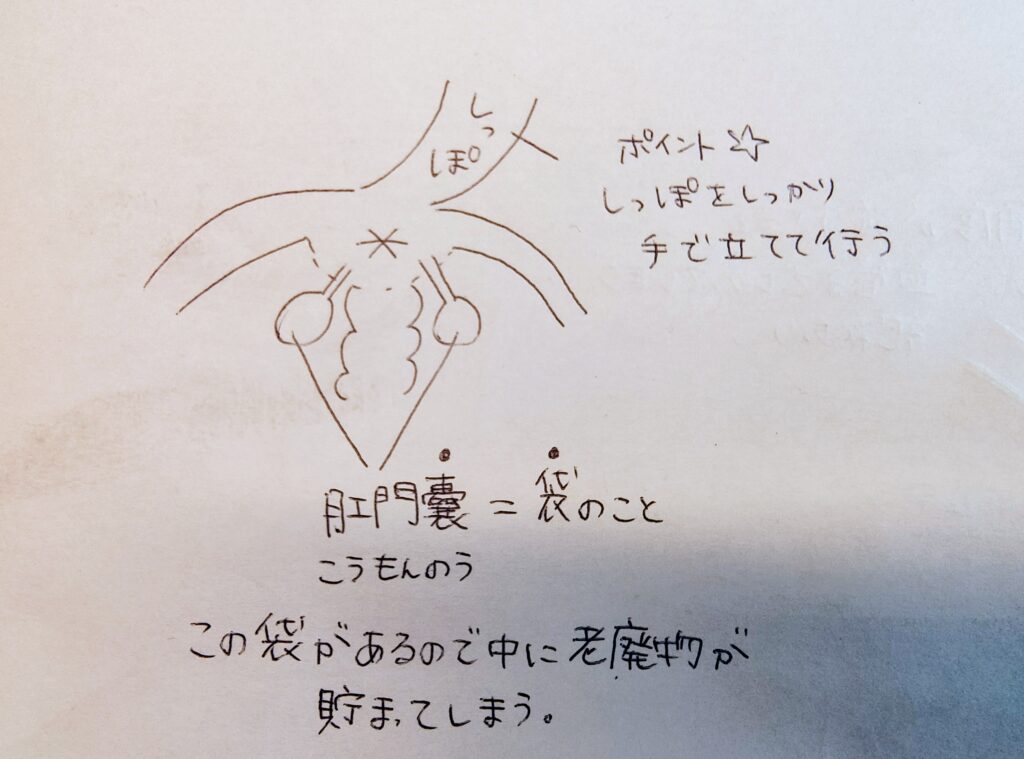 しっぽ
ポイント☆
しっぽをしっかり
手で立てて行う
肛門嚢=袋のこと
こうもんのう
この袋があるので中に老廃物が
貯まってしまう。